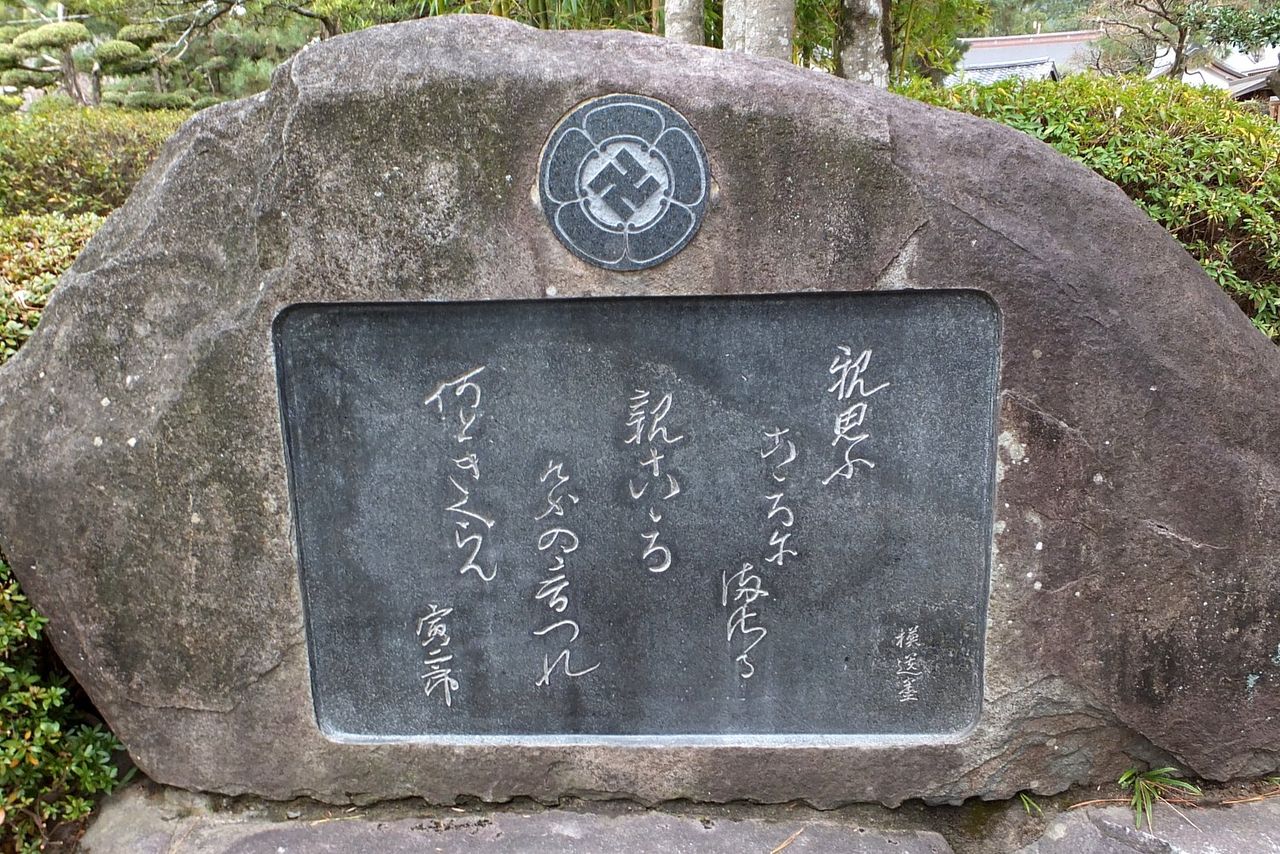 模遺墨
親思ふ
こゝろにまさる
親こゝろ
けふの音つれ
何ときくらん
寅二郎